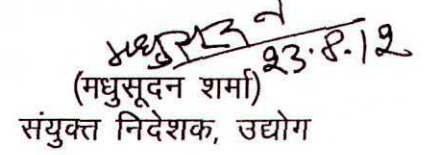 मधुसूदन
23.8.12
(मधुसूदन शर्मा)
संयुक्त निदेशक, उद्योग